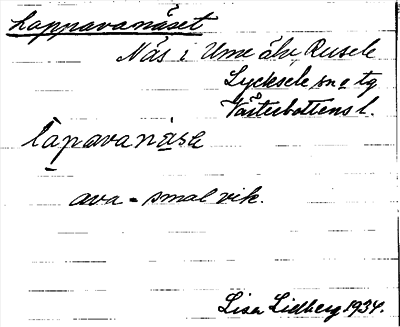 Lappavanäset
Näs i Ume älv, Rusele
Lycksele sn o tg
Västerbottens l.
lapavanäsɘ
ava = smal vik.
Lisa Lidberg 1934.